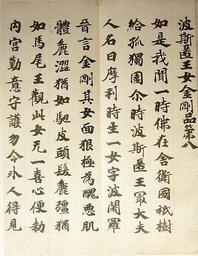 波斯匿王女金剛品第八
如是我聞一時佛在舍衛國祇樹
給孤獨園尒時波斯匿王最大夫
人名曰摩利時生一女字波闍羅
晉言金剛其女面狠極為醜惡肌
體麁澀猶如駞皮頭髮麁強猶
如馬尾王觀此女无一喜心便勑
內宮勤意守護勿令外人得見